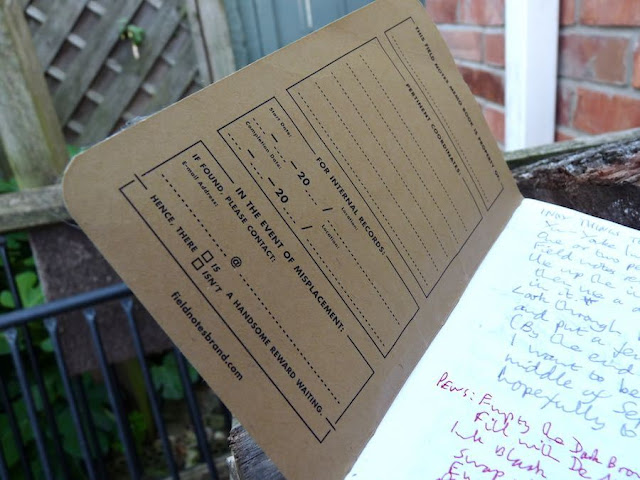 THIS FIELD NOTES MEMO BOOK'S PROPERTY OF:
PERTINENT COORDINATES:
FOR INTERNAL RECORDS:
Start Date: 20 / Location:
Completion Date: 20 / Location:
IN THE EVENT OF MISPLACEMENT:
IF FOUND, PLEASE CONTACT:
E-mail Address
@
HENCE, THERE IS A HANDSOME REWARD WAITING.
ISN'T
fieldnotesbrand.com
one or two
Field notes
use up the
then use a
in it
Look through
and put a fe
(By the end
I want to be
middle of Se
hopefully to
PENS: Empty the Dark Brow
Fill with De
Ink Black
Swap